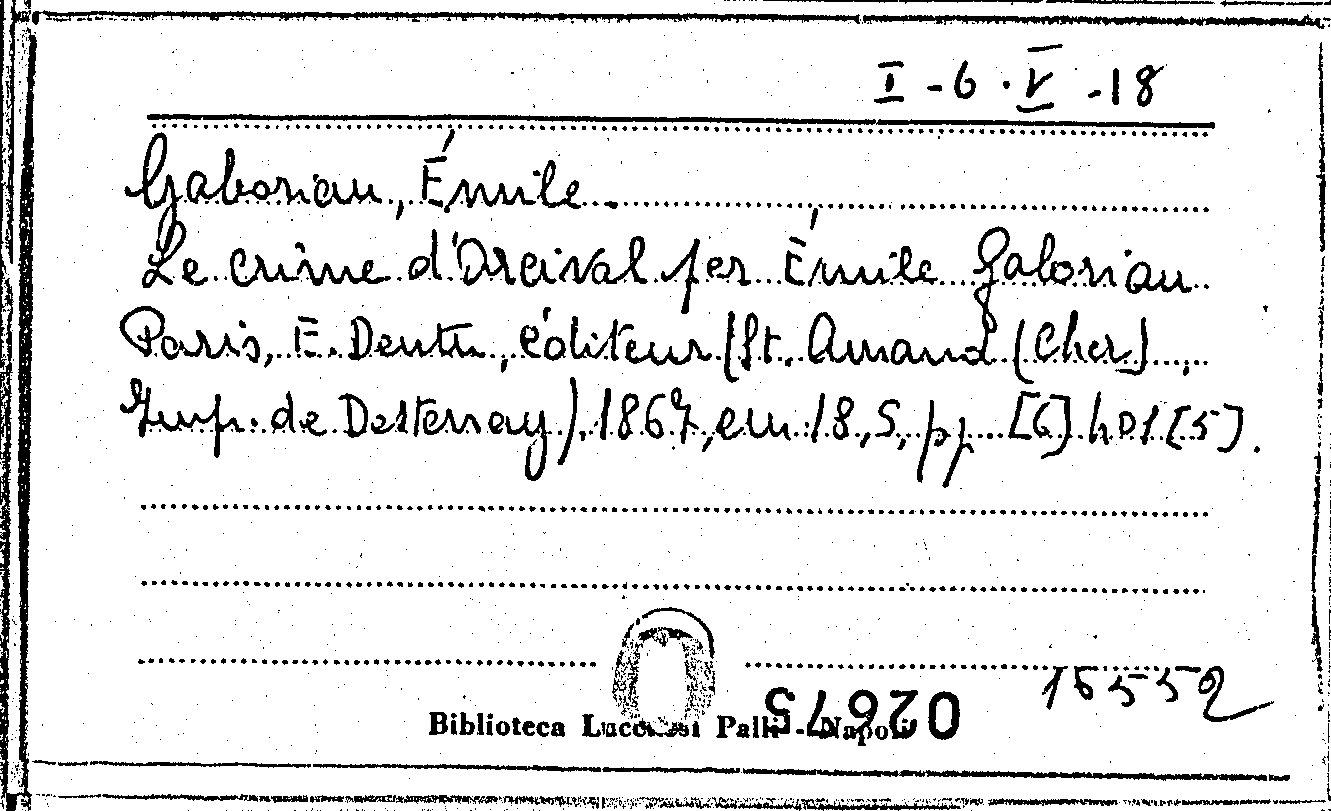 I - 6 . V - 18
Gaboriau, Émile.
Le crime d'Orcival per Émile Gaboriau
Paris, E. Dentu, éditeur (St. Amand (Cher),
Imp. de Destenay), 1867, em 18, 5, pp. [6] 401 [5].
15552
Biblioteca Lucchesi Palli - Napoli
02675